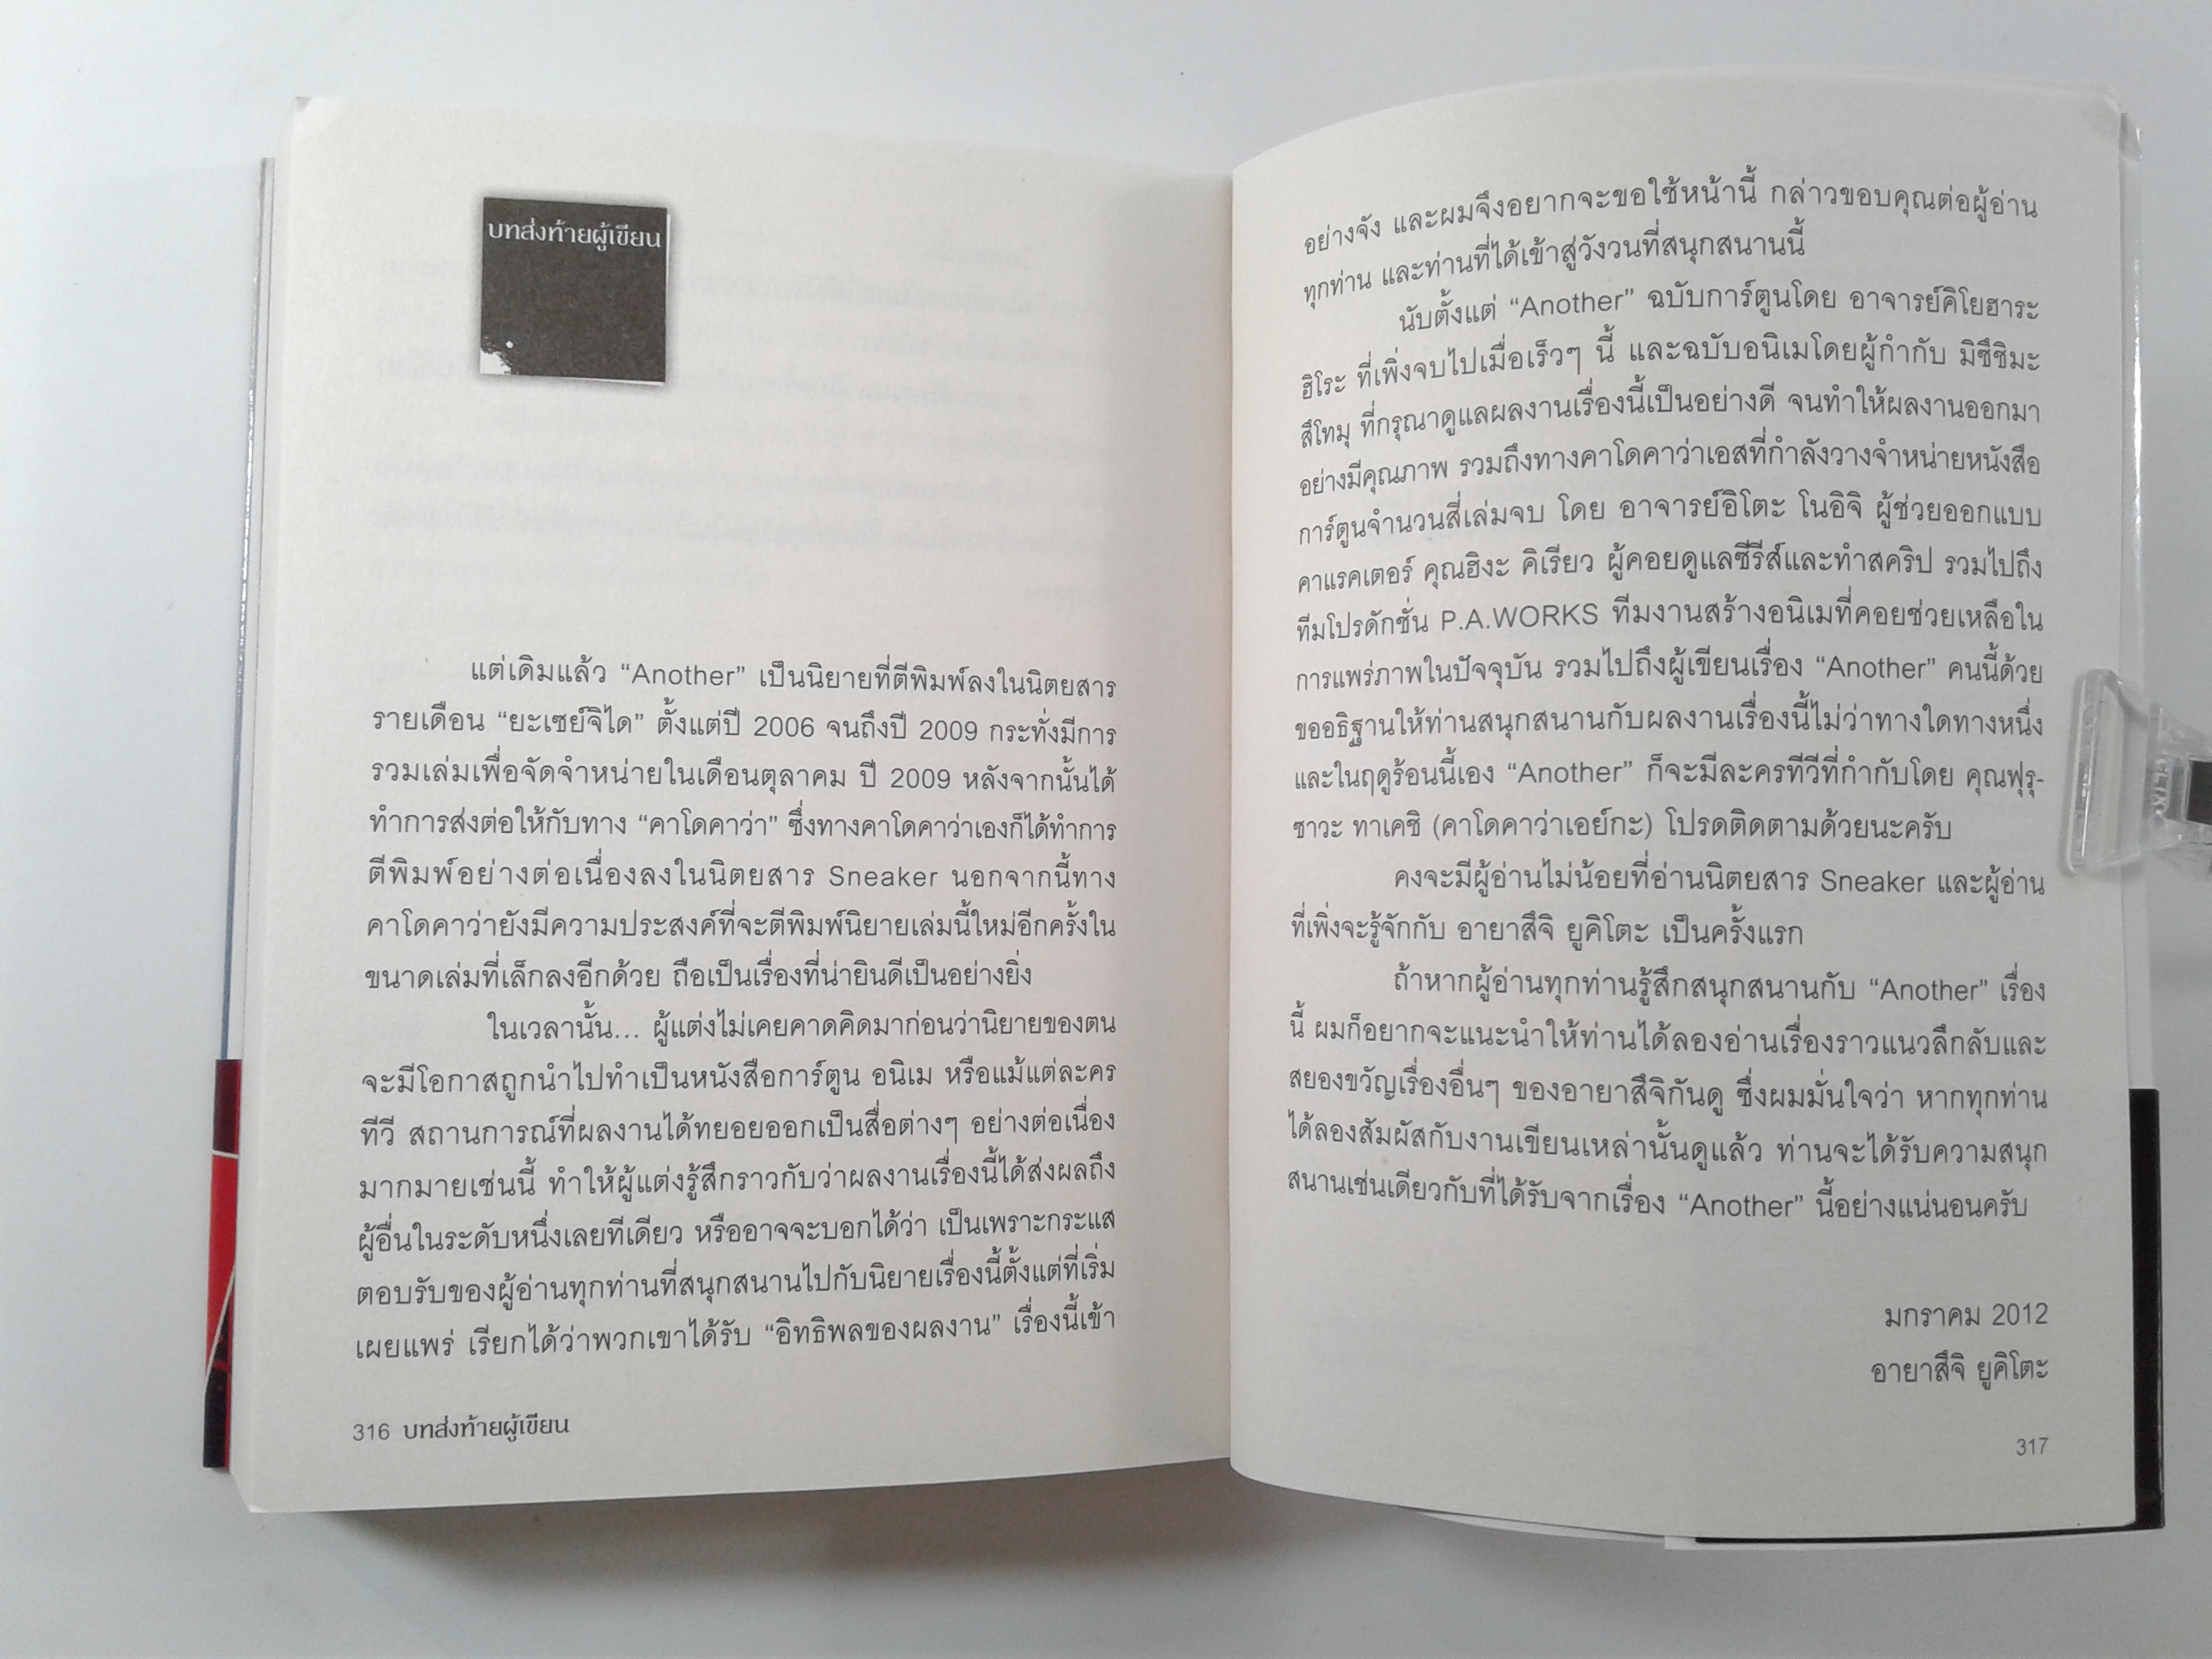 บทส่งท้ายผู้เขียน
แต่เดิมแล้ว “Another” เป็นนิยายที่ตีพิมพ์ลงในนิตยสาร
รายเดือน “ยะเซย์จิได” ตั้งแต่ปี 2006 จนถึงปี 2009 กระทั่งมีการ
รวมเล่มเพื่อจัดจำหน่ายในเดือนตุลาคม ปี 2009 หลังจากนั้นได้
ทำการส่งต่อให้กับทาง “คาโดคาว่า” ซึ่งทางคาโดคาว่าเองก็ได้ทำการ
ตีพิมพ์อย่างต่อเนื่องลงในนิตยสาร Sneaker นอกจากนี้ทาง
คาโดคาว่ายังมีความประสงค์ที่จะตีพิมพ์นิยายเล่มนี้ใหม่อีกครั้งใน
ขนาดเล่มที่เล็กลงอีกด้วย ถือเป็นเรื่องที่น่ายินดีเป็นอย่างยิ่ง
ในเวลานั้น... ผู้แต่งไม่เคยคาดคิดมาก่อนว่านิยายของตน
จะมีโอกาสถูกนำไปทำเป็นหนังสือการ์ตูน อนิเม หรือแม้แต่ละคร
ทีวี สถานการณ์ที่ผลงานได้ทยอยออกเป็นสื่อต่างๆ อย่างต่อเนื่อง
มากมายเช่นนี้ ทำให้ผู้แต่งรู้สึกราวกับว่าผลงานเรื่องนี้ได้ส่งผลถึง
ผู้อื่นในระดับหนึ่งเลยทีเดียว หรืออาจจะบอกได้ว่า เป็นเพราะกระแส
ตอบรับของผู้อ่านทุกท่านที่สนุกสนานไปกับนิยายเรื่องนี้ตั้งแต่ที่เริ่ม
เผยแพร่ เรียกได้ว่าพวกเขาได้รับ “อิทธิพลของผลงาน” เรื่องนี้เข้า
316 บทส่งท้ายผู้เขียน
อย่างจัง และผมจึงอยากจะขอใช้หน้านี้ กล่าวขอบคุณต่อผู้อ่าน
ทุกท่าน และท่านที่ได้เข้าสู่วังวนที่สนุกสนานนี้
นับตั้งแต่ “Another” ฉบับการ์ตูนโดย อาจารย์คิโยฮาระ
ฮิโระ ที่เพิ่งจบไปเมื่อเร็วๆ นี้ และฉบับอนิเมโดยผู้กำกับ มิซึชิมะ
สึโทมุ ที่กรุณาดูแลผลงานเรื่องนี้เป็นอย่างดี จนทำให้ผลงานออกมา
อย่างมีคุณภาพ รวมถึงทางคาโดคาว่าเอสที่กำลังวางจำหน่ายหนังสือ
การ์ตูนจำนวนสี่เล่มจบ โดย อาจารย์อิโตะ โนอิจิ ผู้ช่วยออกแบบ
คาแรคเตอร์ คุณฮิงะ คิเรียว ผู้คอยดูแลซีรีส์และทำสคริป รวมไปถึง
ทีมโปรดักชั่น P.A.WORKS ทีมงานสร้างอนิเมที่คอยช่วยเหลือใน
การแพร่ภาพในปัจจุบัน รวมไปถึงผู้เขียนเรื่อง “Another” คนนี้ด้วย
ขออธิฐานให้ท่านสนุกสนานกับผลงานเรื่องนี้ไม่ว่าทางใดทางหนึ่ง
และในฤดูร้อนนี้เอง “Another” ก็จะมีละครทีวีที่กำกับโดย คุณฟุรุ-
ซาวะ ทาเคชิ (คาโดคาว่าเอย์กะ) โปรดติดตามด้วยนะครับ
คงจะมีผู้อ่านไม่น้อยที่อ่านนิตยสาร Sneaker และผู้อ่าน
ที่เพิ่งจะรู้จักกับ อายาสึจิ ยูคิโตะ เป็นครั้งแรก
ถ้าหากผู้อ่านทุกท่านรู้สึกสนุกสนานกับ “Another” เรื่อง
นี้ ผมก็อยากจะแนะนำให้ท่านได้ลองอ่านเรื่องราวแนวลึกลับและ
สยองขวัญเรื่องอื่นๆ ของอายาสึจิกันดู ซึ่งผมมั่นใจว่า หากทุกท่าน
ได้ลองสัมผัสกับงานเขียนเหล่านั้นดูแล้ว ท่านจะได้รับความสนุก
สนานเช่นเดียวกับที่ได้รับจากเรื่อง “Another” นี้อย่างแน่นอนครับ
มกราคม 2012
อายาสึจิ ยูคิโตะ
317